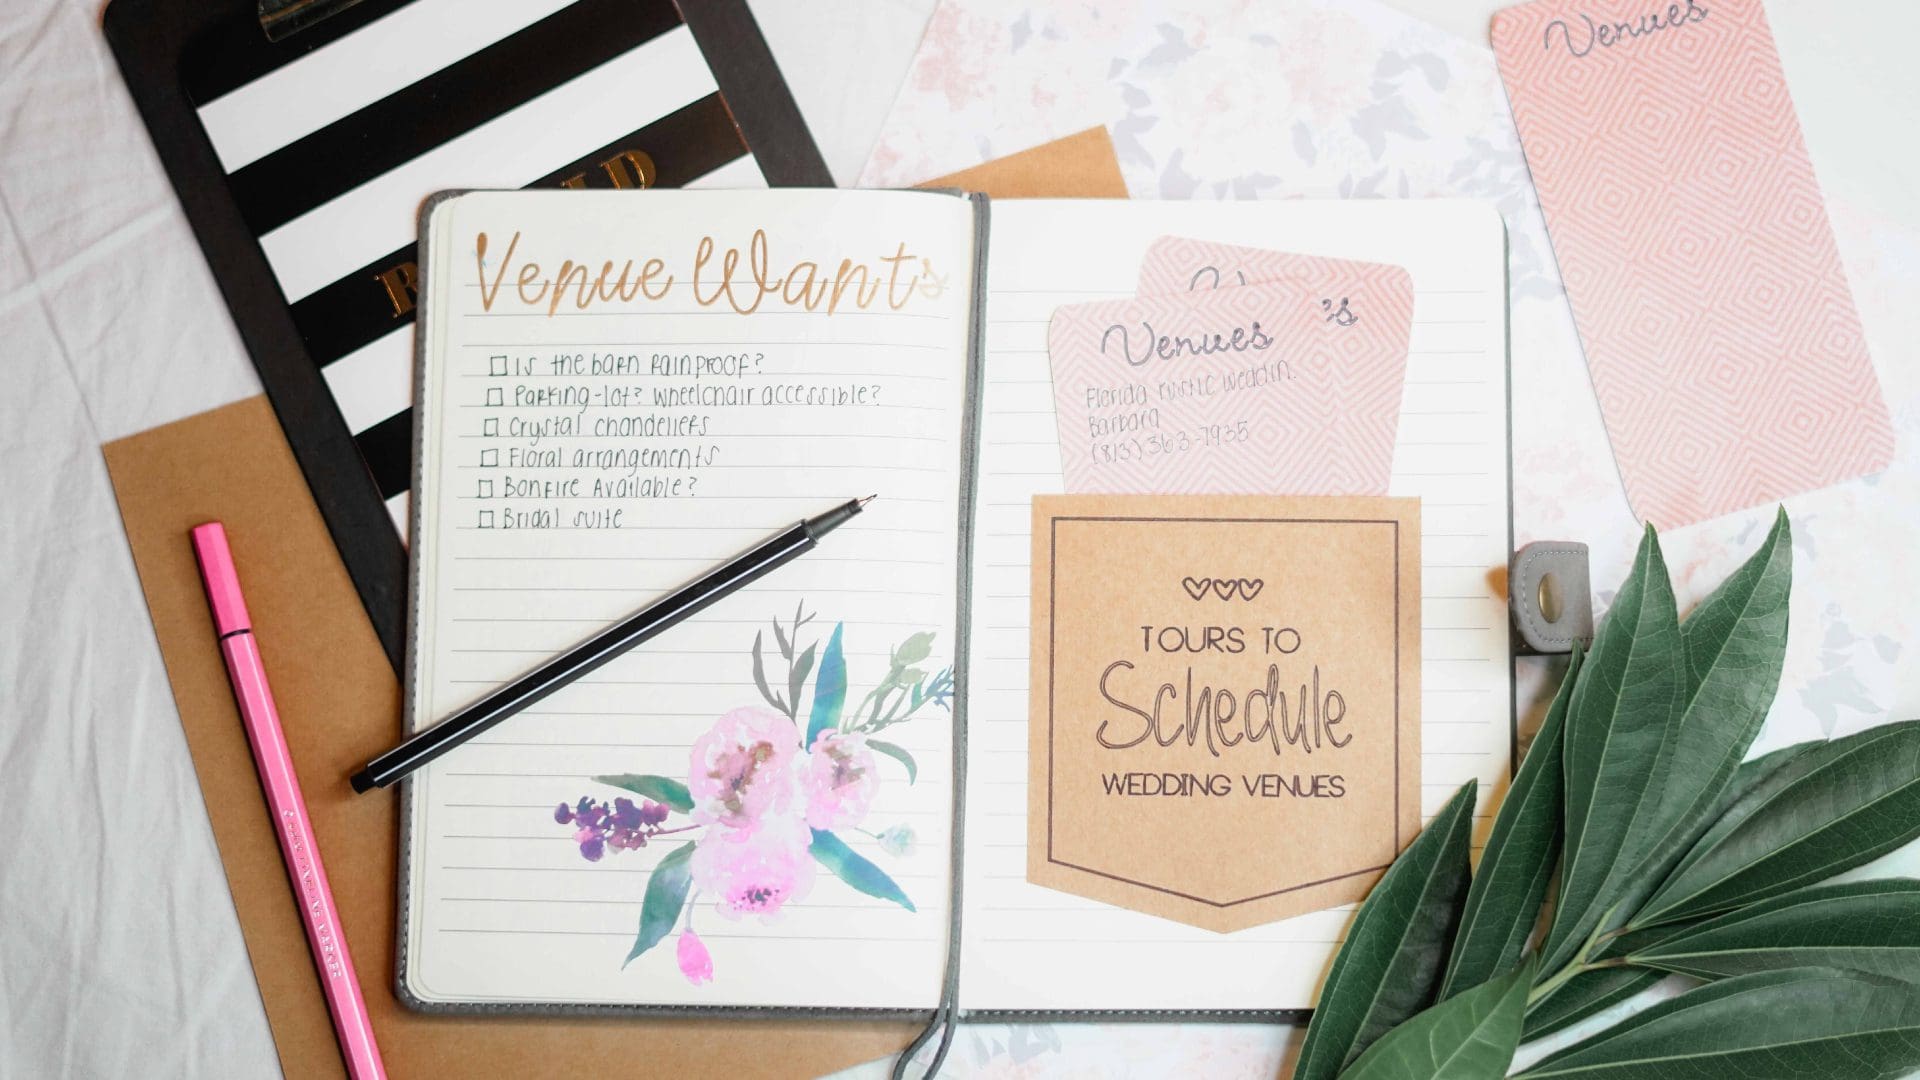 Venues
Venue Wants
Is the barn rainproof?
Parking-lot? wheelchair accessible?
Crystal chandeliers
Floral arrangements
Bonfire Available?
Bridal suite
Venues
Florida rustic weddin.
Barbara
(813) 363-7935
TOURS TO
Schedule
WEDDING VENUES